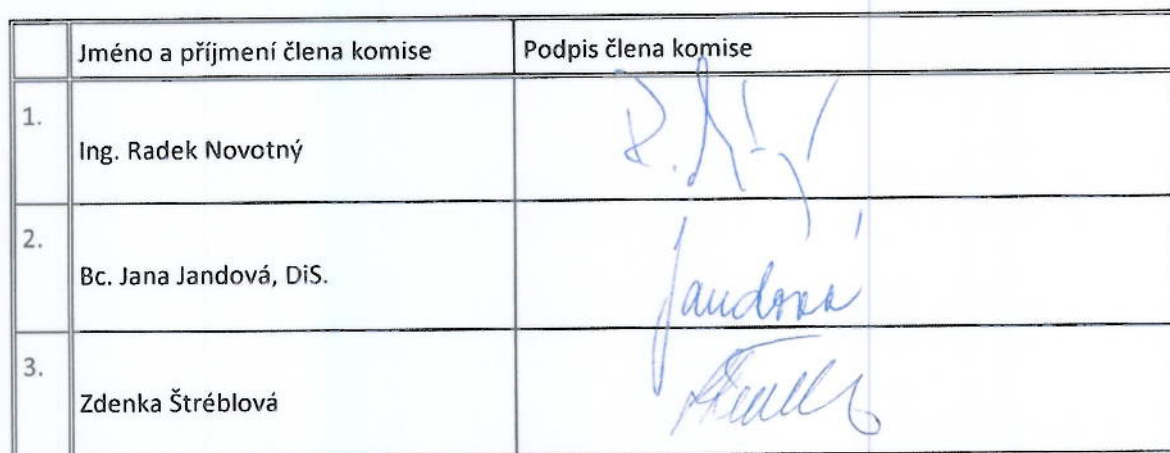 Jméno a příjmení člena komise Podpis člena komise
1. Ing. Radek Novotný
2. Bc. Jana Jandová, DiS. Jandová
3. Zdenka Štréblová